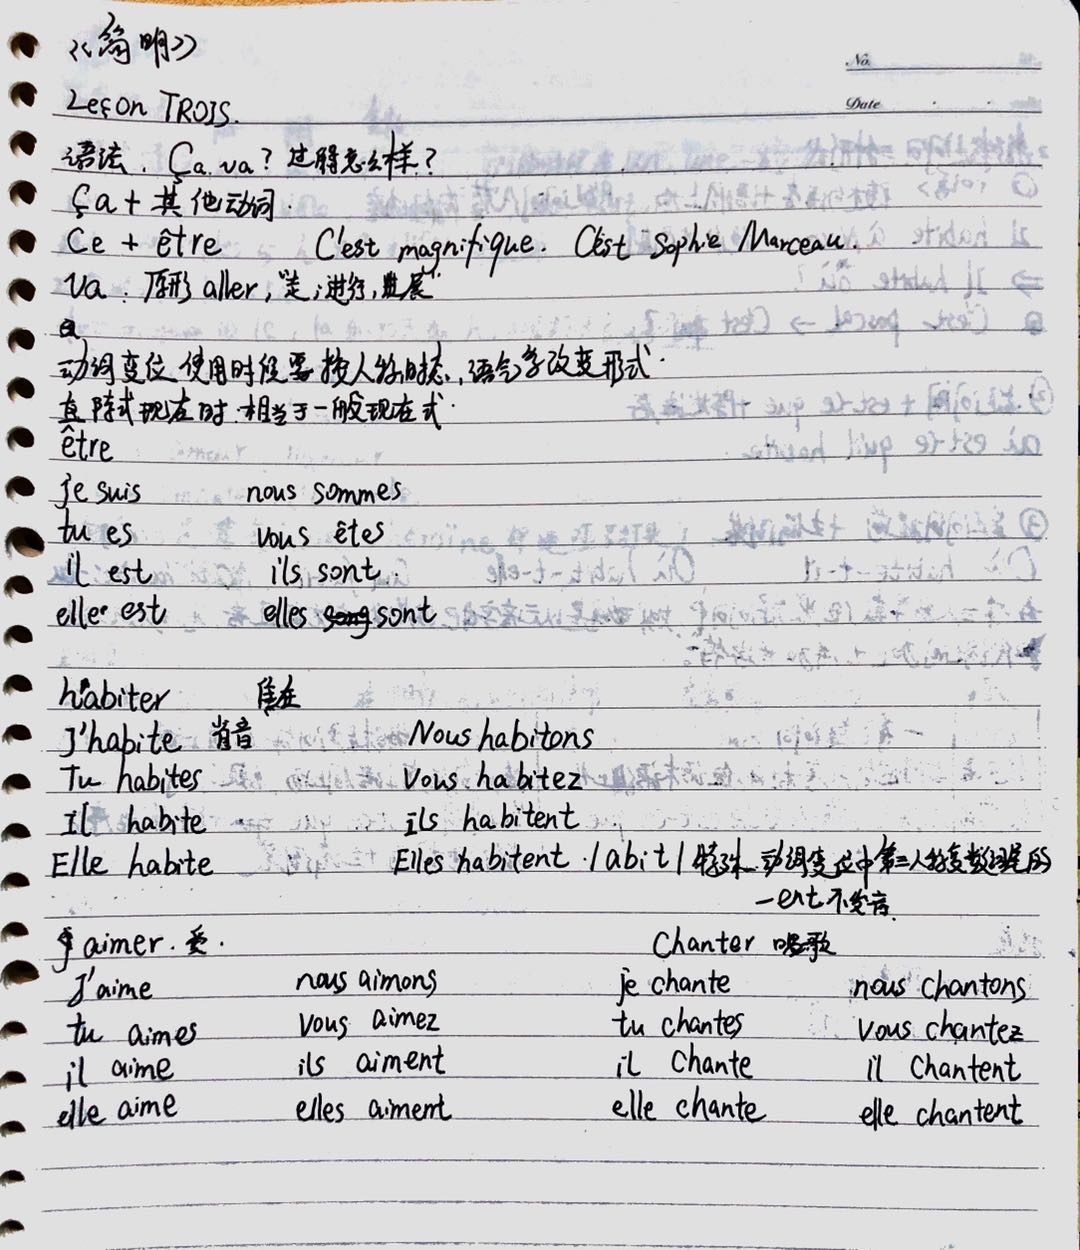 《简明》
No.
Leçon TROIS.
Date
语法. Ça va? 过得怎么样?
Ça + 其他动词.
Ce + être C'est magnifique. C'est Sophie Marceau.
Va: 原形 aller, "走,进行,进展"
动词变位 使用时候要按人称,时态,语气等改变形式.
直陈式现在时.相当于一般现在式.
être
je suis nous sommes
tu es vous êtes
il est ils sont.
elle est elles song sont
habiter 居住
J'habite 省音 Nous habitons
Tu habites Vous habitez
Il habite ils habitent
Elle habite Elles habitent /abit/ 特殊.动词变位中第三人称复数词尾的
-ent不发音.
aimer. 爱. Chanter 唱歌
J'aime nous aimons je chante nous chantons
tu aimes vous aimez tu chantes vous chantez
il aime ils aiment il chante il chantent
elle aime elles aiment elle chante elle chantent